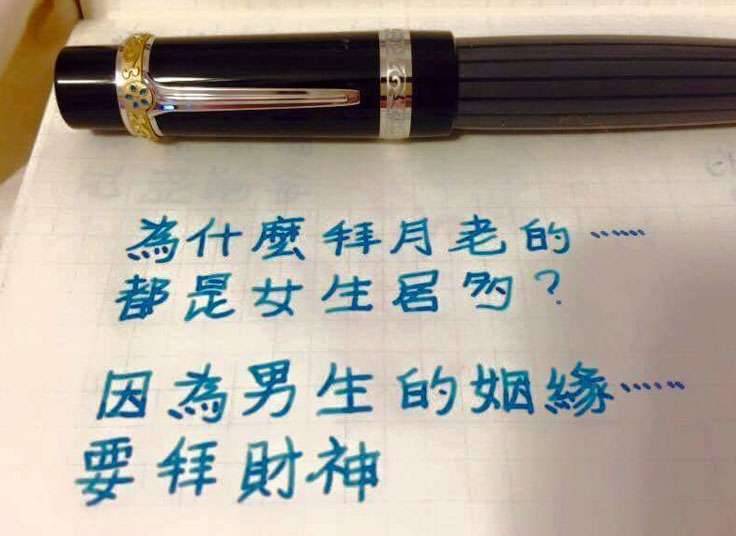 為什麼拜月老的……
都是女生居多?
因為男生的姻緣……
要拜財神